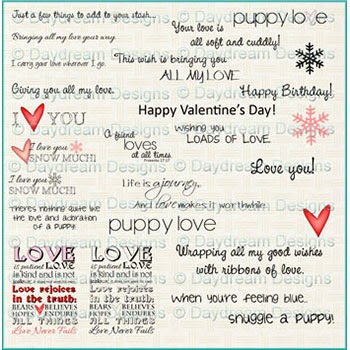 Just a few things to add to your stash...
puppy love
Bringing all my love your way.
Your love is
all soft and cuddly!
I carry your love wherever I go.
This wish is bringing you
ALL MY LOVE
Giving you all my love.
Happy Birthday!
I YOU
Happy Valentine's Day!
A friend
loves
at all times
Wishing you
LOADS OF LOVE.
I love you
SNOW MUCH!
I love you
SNOW MUCH!
Love you!
Life is a journey,
And love makes it worthwhile.
There's nothing quite like
the love and adoration
of a puppy.
puppy love
LOVE
is patient LOVE
is kind and is not
Love rejoices
in the truth;
BEARS BELIEVES
HOPES ENDURES
ALL THINGS
Love Never Fails
LOVE
is patient LOVE
is kind and is not
Love rejoices
in the truth;
BEARS BELIEVES
HOPES ENDURES
ALL THINGS
Love Never Fails
Wrapping all my good wishes
with ribbons of love.
When you're feeling blue...
snuggle a puppy!
© Daydream Designs